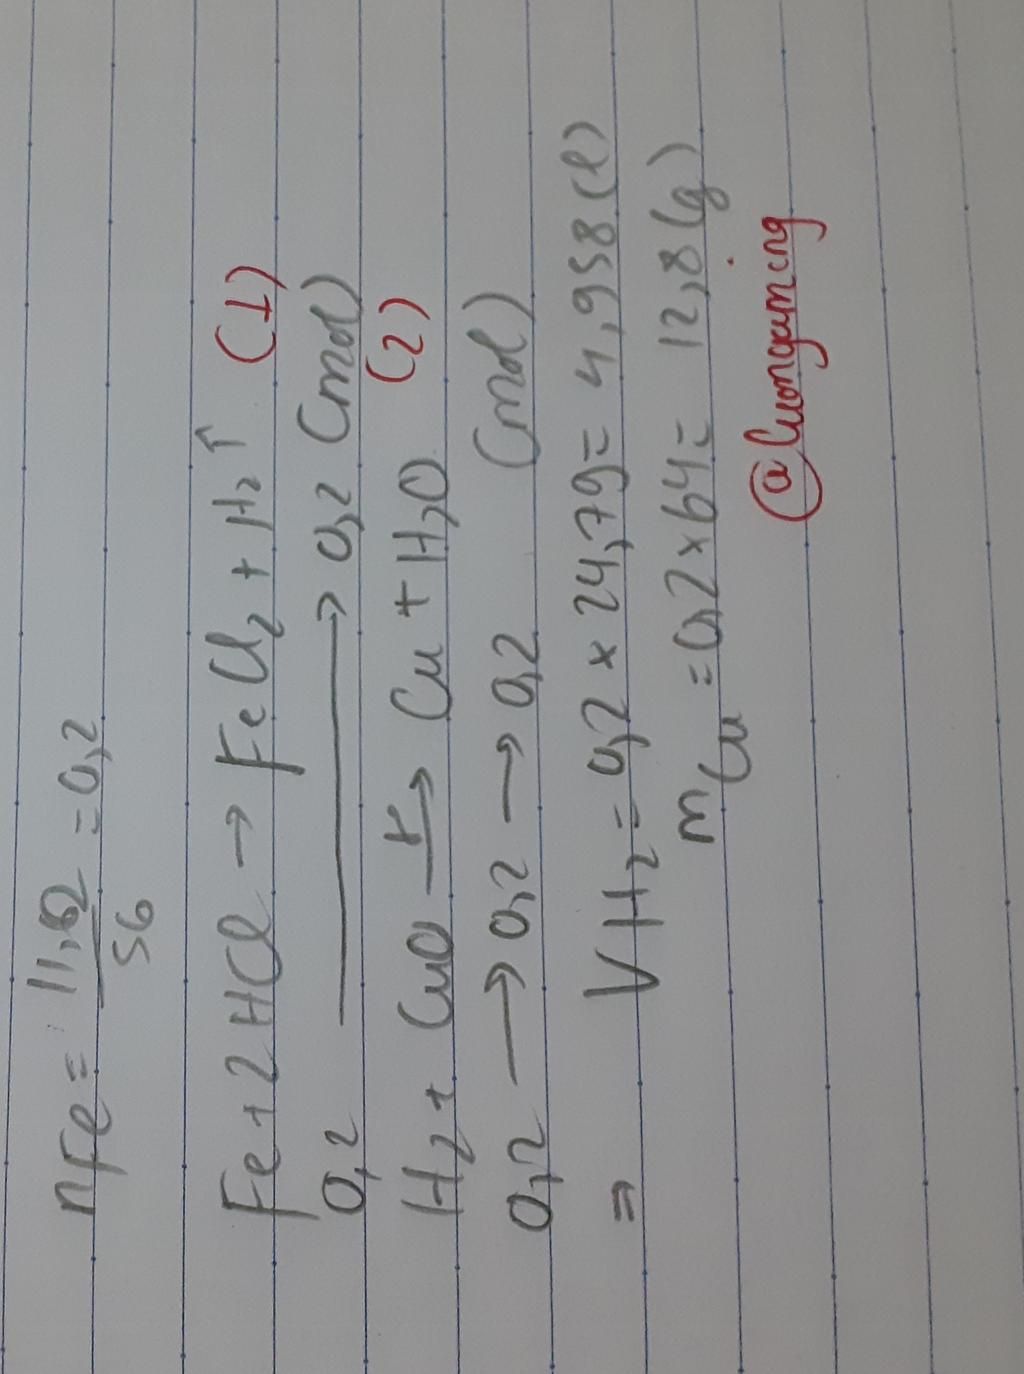 nFe = 11,2/56 = 0,2
Fe + 2HCl → FeCl₂ + H₂↑ (1)
0,2 → 0,2 (mol)
H₂ + CuO → Cu + H₂O (2)
0,2 → 0,2 → 0,2 (mol)
⇒ VH₂ = 0,2 × 24,79 = 4,958 (l)
mCu = 0,2 × 64 = 12,8 (g)